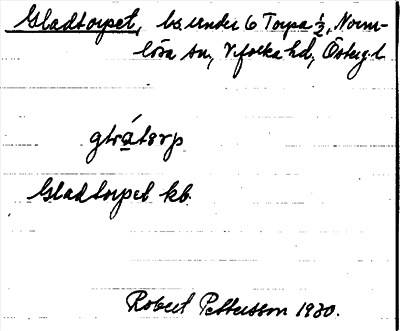 Gladtorpet, bs under 6 Torpa ½, Norrn-
lösa sn, Vifolka hd, Östergl.
glrátərp
Gladtorpet kb.
Robert Pettersson 1930.